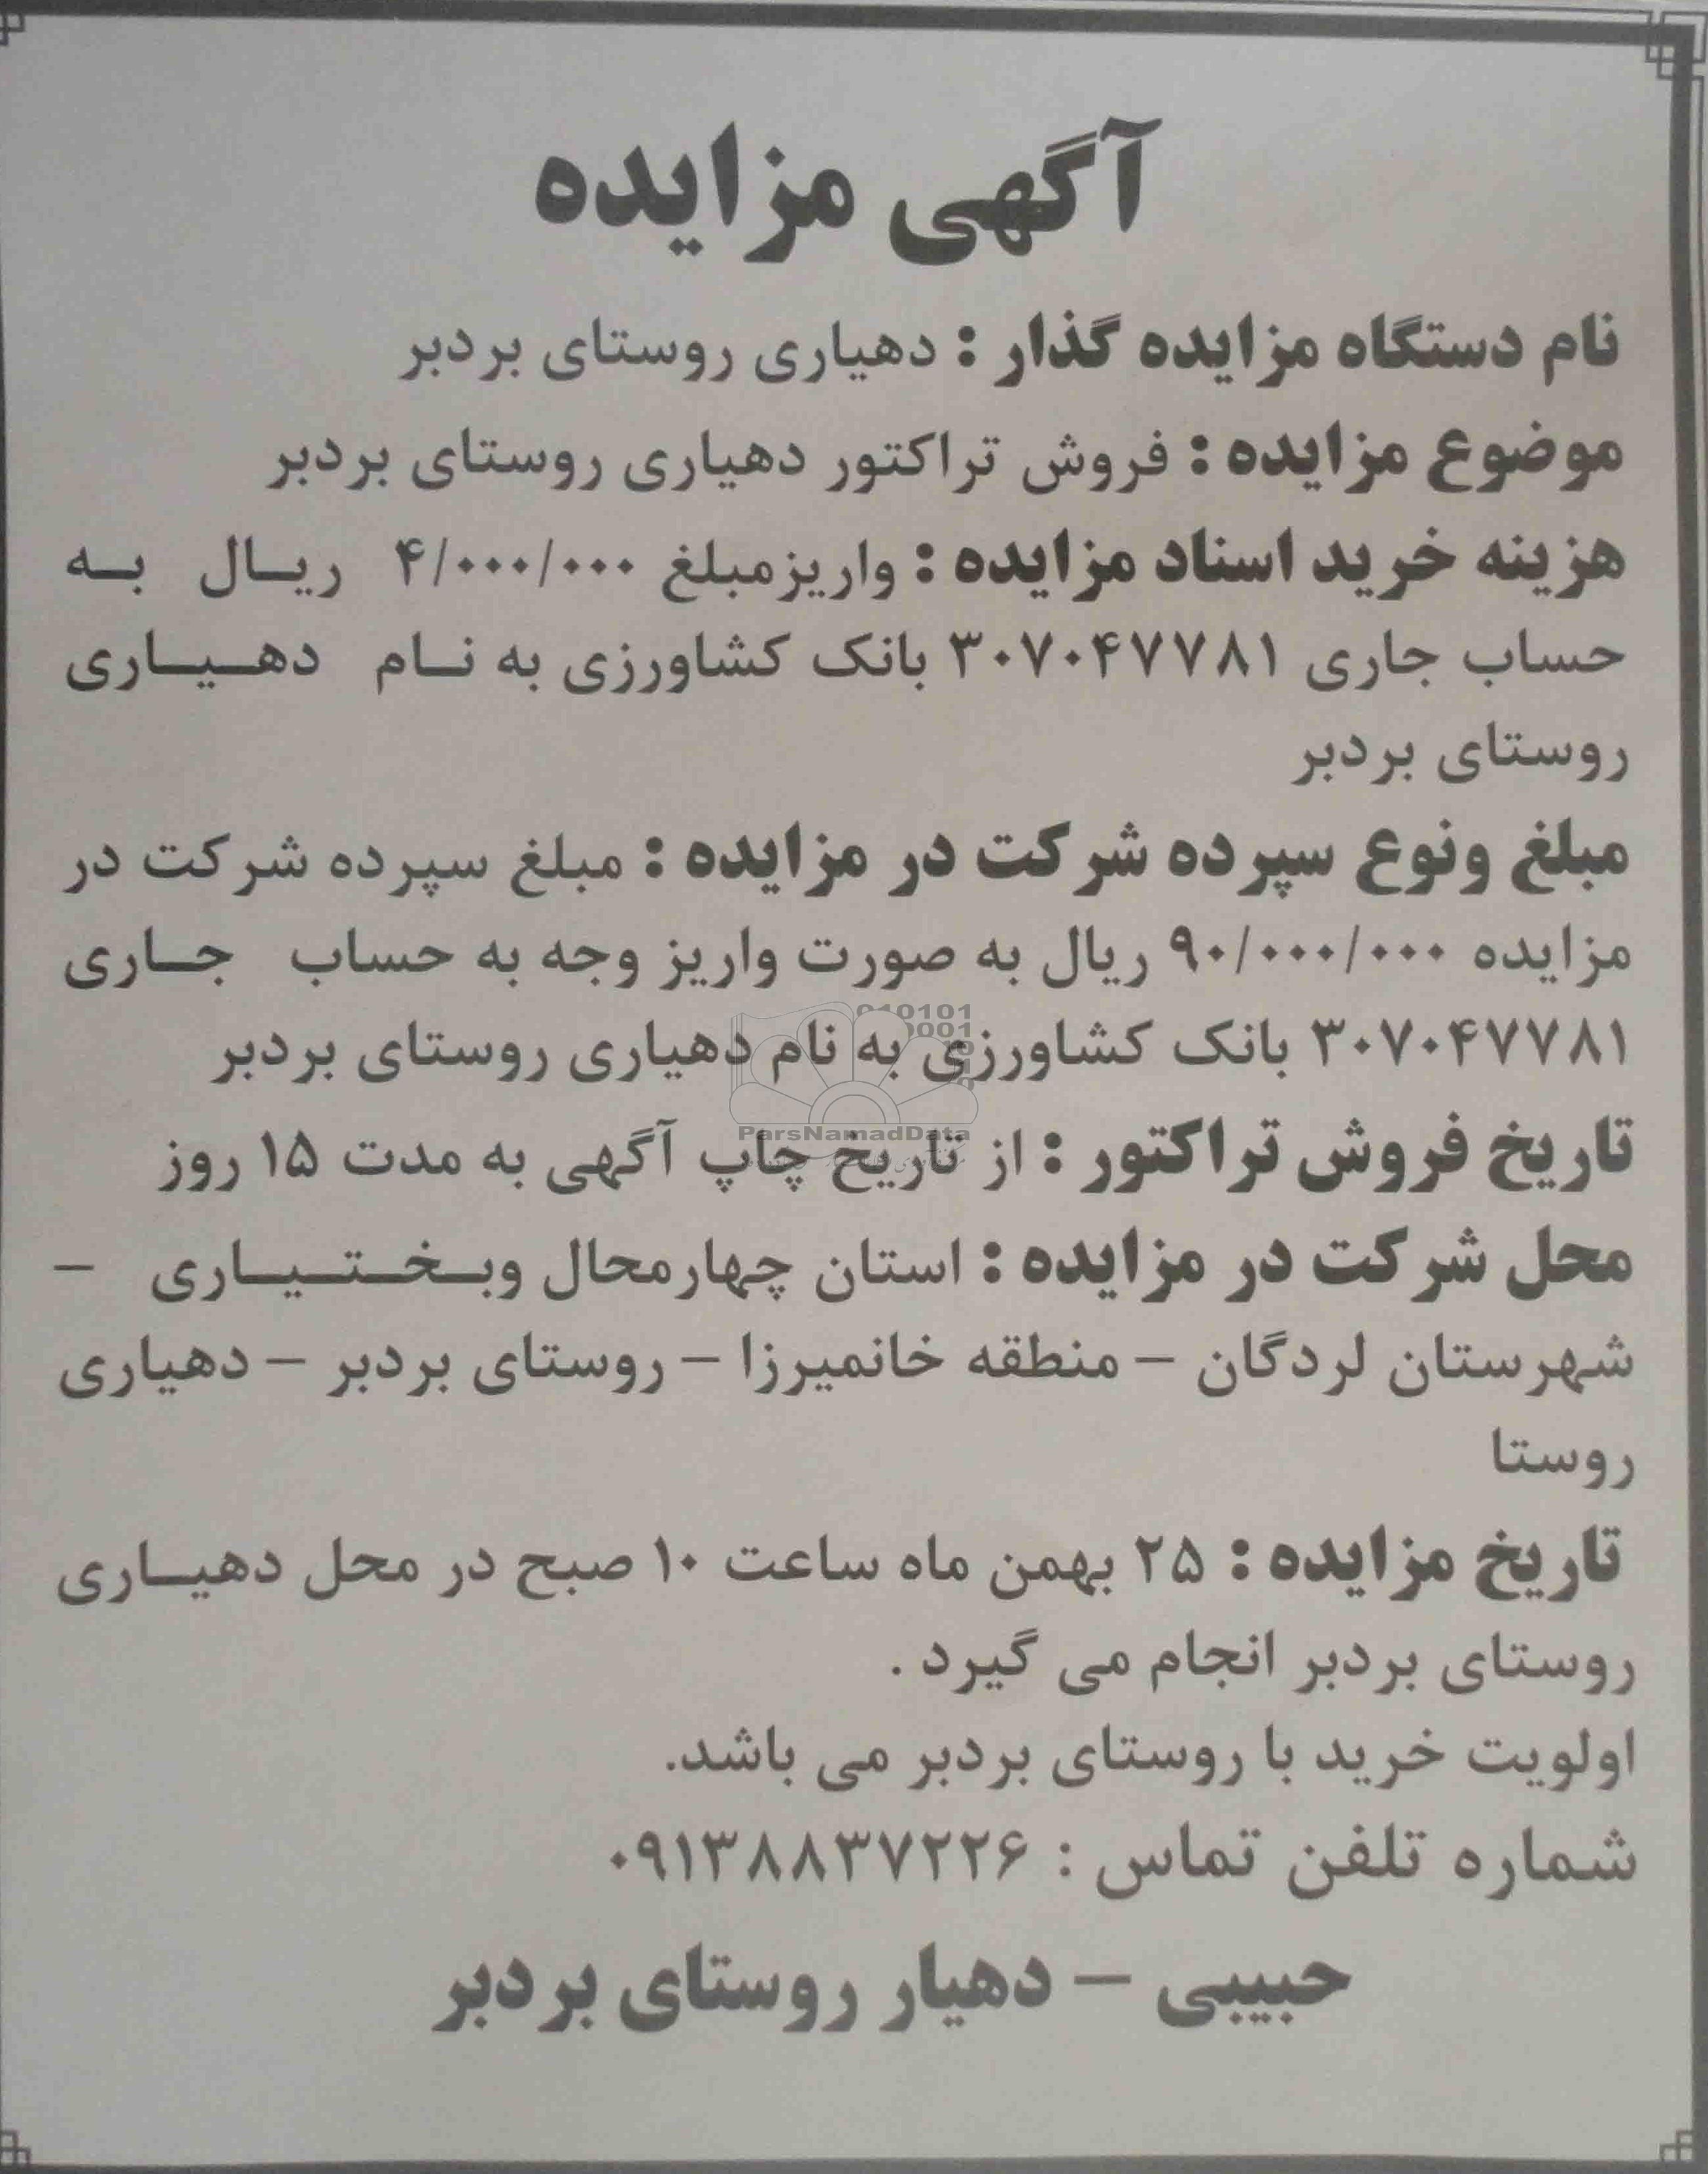 آگهی مزایده
نام دستگاه مزایده گذار : دهیاری روستای بردبر
موضوع مزایده : فروش تراکتور دهیاری روستای بردبر
هزینه خرید اسناد مزایده : واریزمبلغ ۴/۰۰۰/۰۰۰ ریال به
حساب جاری ۳۰۷۰۴۷۷۸۱ بانک کشاورزی به نام دهیاری
روستای بردبر
مبلغ ونوع سپرده شرکت در مزایده : مبلغ سپرده شرکت در
مزایده ۹۰/۰۰۰/۰۰۰ ریال به صورت واریز وجه به حساب جاری
010101
0001
۳۰۷۰۴۷۷۸۱ بانک کشاورزی به نام دهیاری روستای بردبر
ParsNamadData
تاریخ فروش تراکتور : از تاریخ چاپ آگهی به مدت ۱۵ روز
محل شرکت در مزایده : استان چهارمحال وبختیاری –
شهرستان لردگان – منطقه خانمیرزا – روستای بردبر – دهیاری
روستا
تاریخ مزایده : ۲۵ بهمن ماه ساعت ۱۰ صبح در محل دهیاری
روستای بردبر انجام می گیرد .
اولویت خرید با روستای بردبر می باشد.
شماره تلفن تماس : ۰۹۱۳۸۸۳۷۲۲۶
حبیبی – دهیار روستای بردبر